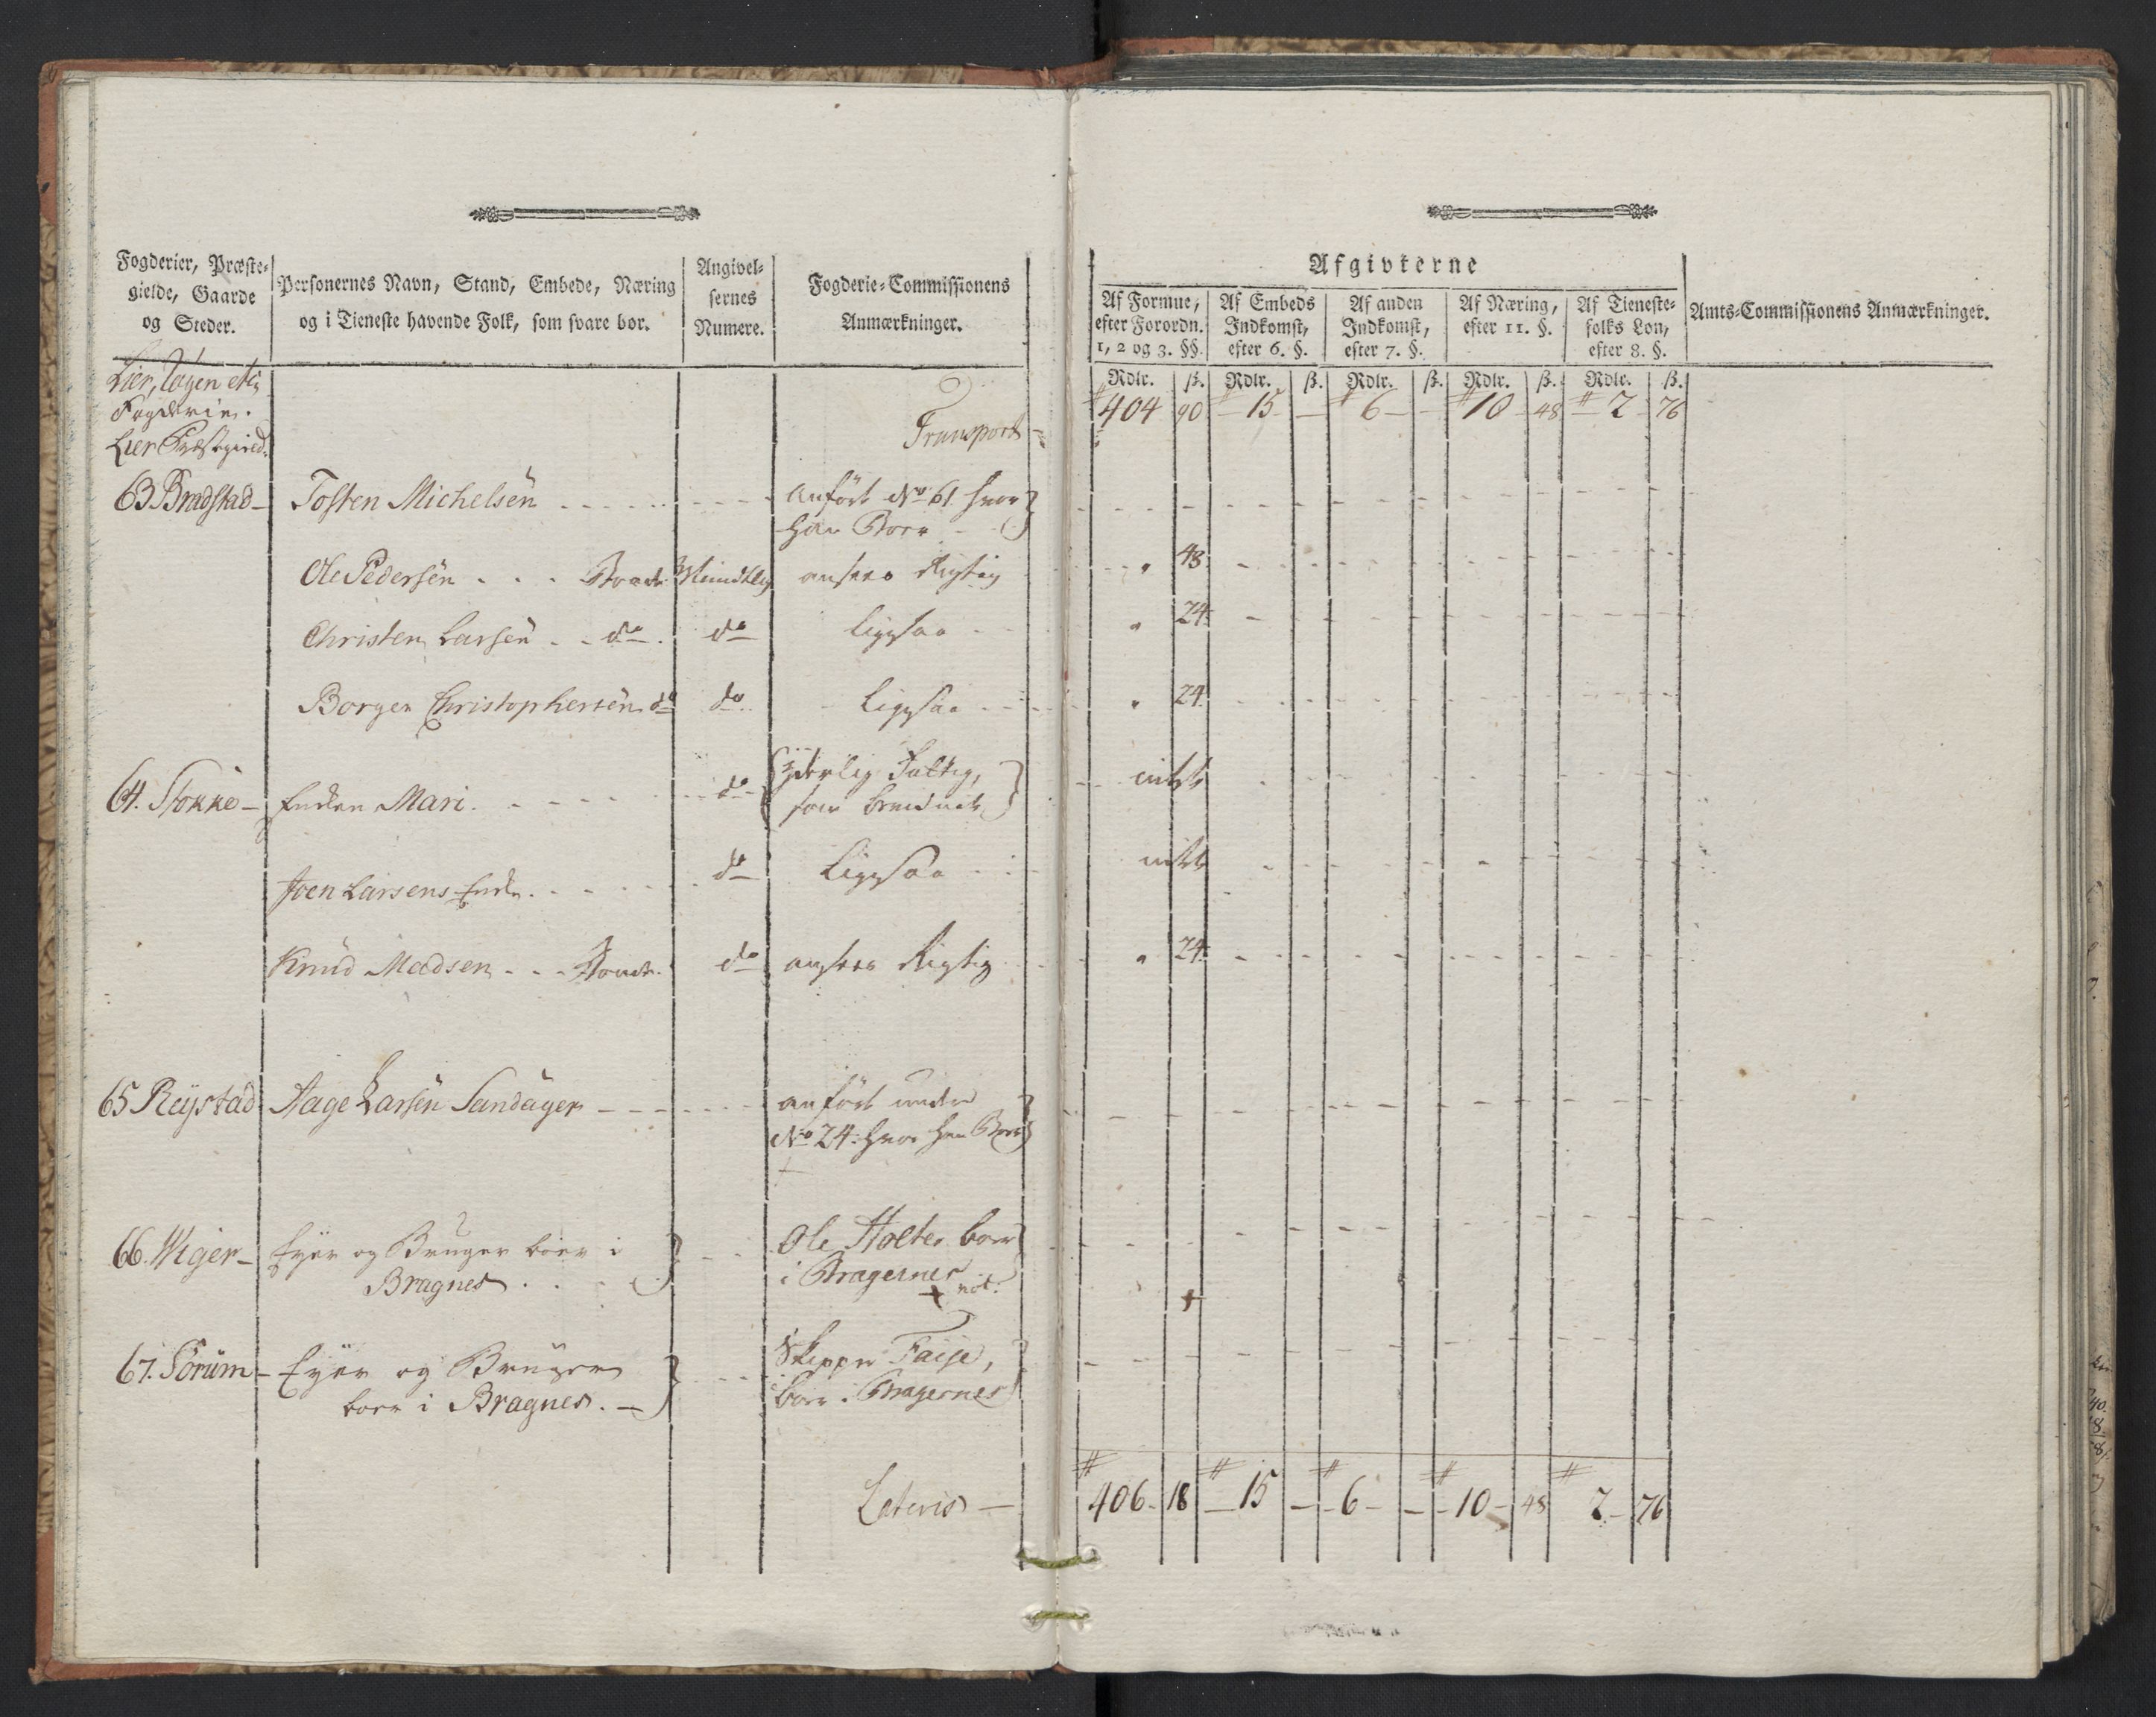 Fogderier, Præste-
gielde, Gaarde
og Steder.
Personernes Navn, Stand, Embede, Næring
og i Tieneste havende Folk, som svare bør.
Angivel-
sernes
Numere.
Fogderie-Commissionens
Anmærkninger.
Afgivterne
Af Formue,
efter Forordn.
1, 2 og 3. §§.
Af Embeds
Indkomst,
efter 6. §.
Af anden
Indkomst,
efter 7. §.
Af Næring,
efter 11. §.
Af Tieneste-
folks Løn,
efter 8. §.
Amts-Commissionens Anmærkninger.
Rdlr. ß. Rdlr. ß. Rdlr. ß. Rdlr. ß. Rdlr. ß.
Lier,
Fogderie.
Lier Præstegield.
Transport 404 90 15 — 6 — 10 48 2 76
63 Bradstad Tosten Michelsen anført No 61 hvor
han Boer
Ole Pedersen Bonde Mundtlig ansees Rigtig " 48
Christen Larsen do do ligesaa " 24
Borger Christophersen do do Ligesaa " 24
64. Stokke Enken Mari do yderlig Fattig, intet
Joen Larsens Enke do Ligesaa intet
Knud Madsen Bonde do ansees Rigtig " 24
65 Reystad Aage Larsen Sandager anført under
No 24. hvor han Boer
66. Wiger Eyer og Bruger boer i Ole Holter boer
Bragnes i Bragernes
67. Sørum Eyer og Bruger Skipper Faije,
boer i Bragnes. boer i Bragernes
Lateris 406 18 15 — 6 — 10 48 2 76